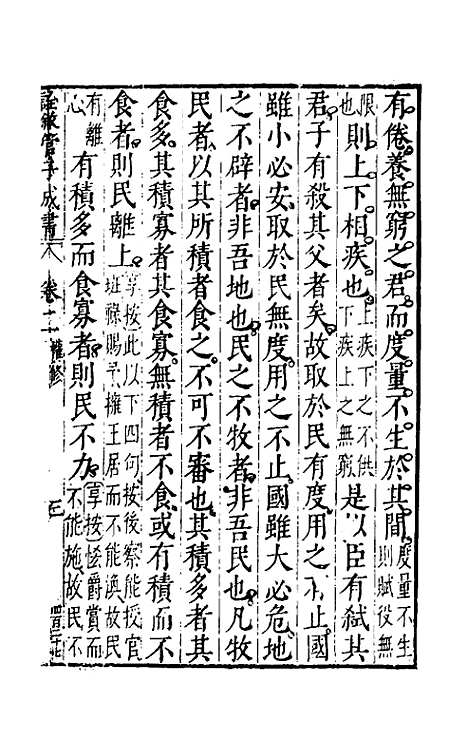 有倦養無窮之君而度量不生於其間度量不生則賦役無
限也則上下相疾也上疾下之不供下疾上之無窮是以臣有弒其
君子有殺其父者矣故取於民有度用之不止國
雖小必安取於民無度用之不止國雖大必危地
之不辟者非吾地也民之不牧者非吾民也凡牧
民者以其所積者食之不可不審也其積多者其
食多其積寡者其食寡無積者不食或有積而不
食者則民離上享按此以下四句按後察能授官班祿賜予擁王居而不能渙故民
有離心有積多而食寡者則民不力享按恡爵賞而不能施故民不
詮敘管子成書 卷二 權修 三